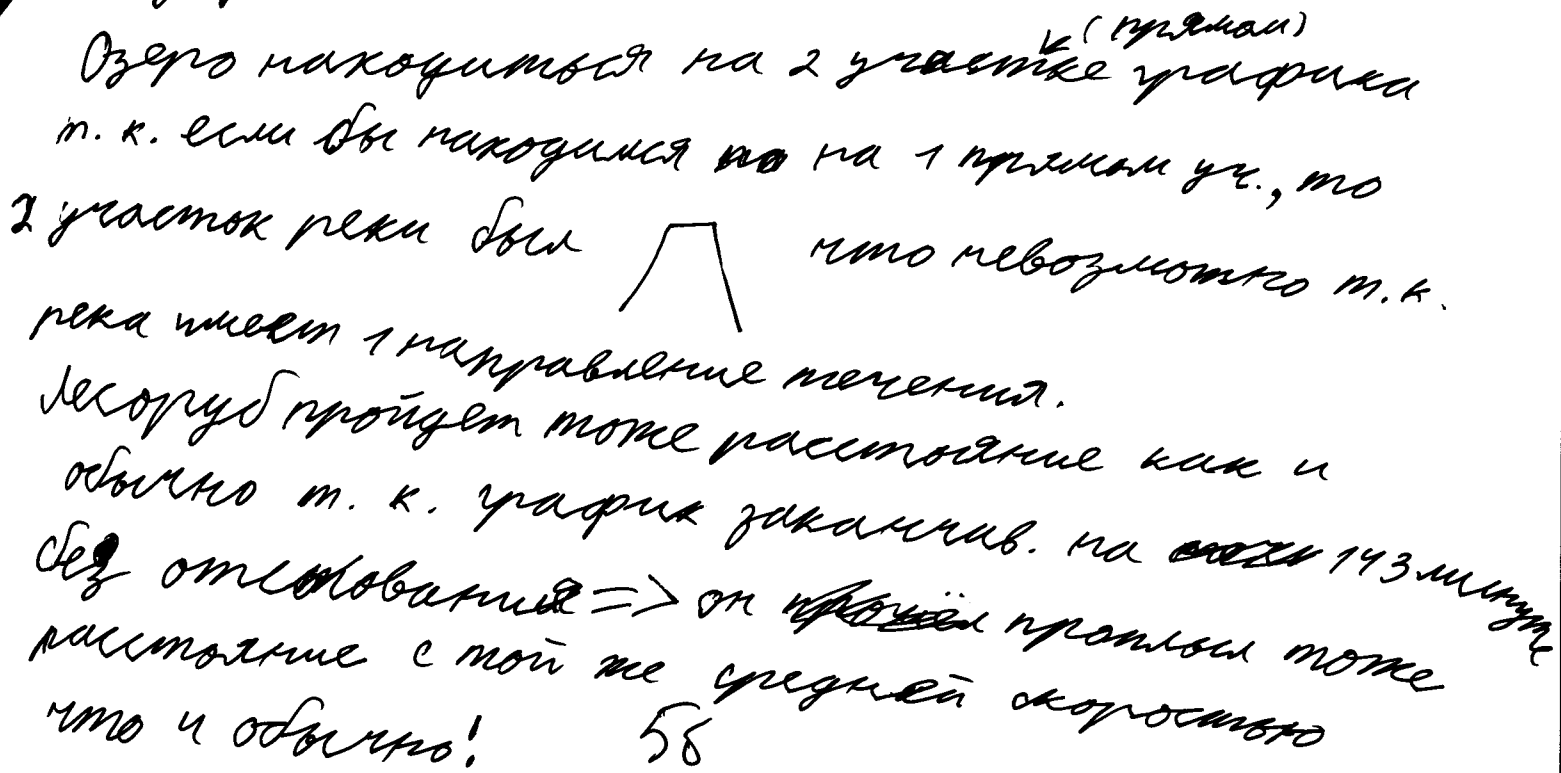 (прямом)
Озеро находиться на 2 участке графика
т. к. если бы находился на 1 прямом уч., то
2 участок реки был что невозможно т. к.
река имеет 1 направление течения.
Лесоруб пройдет тоже расстояние как и
обычно т. к. график заканчив. на 143 минуте
без => он проплыл тоже
расстояние с той же средней скоростью
что и обычно! 5б